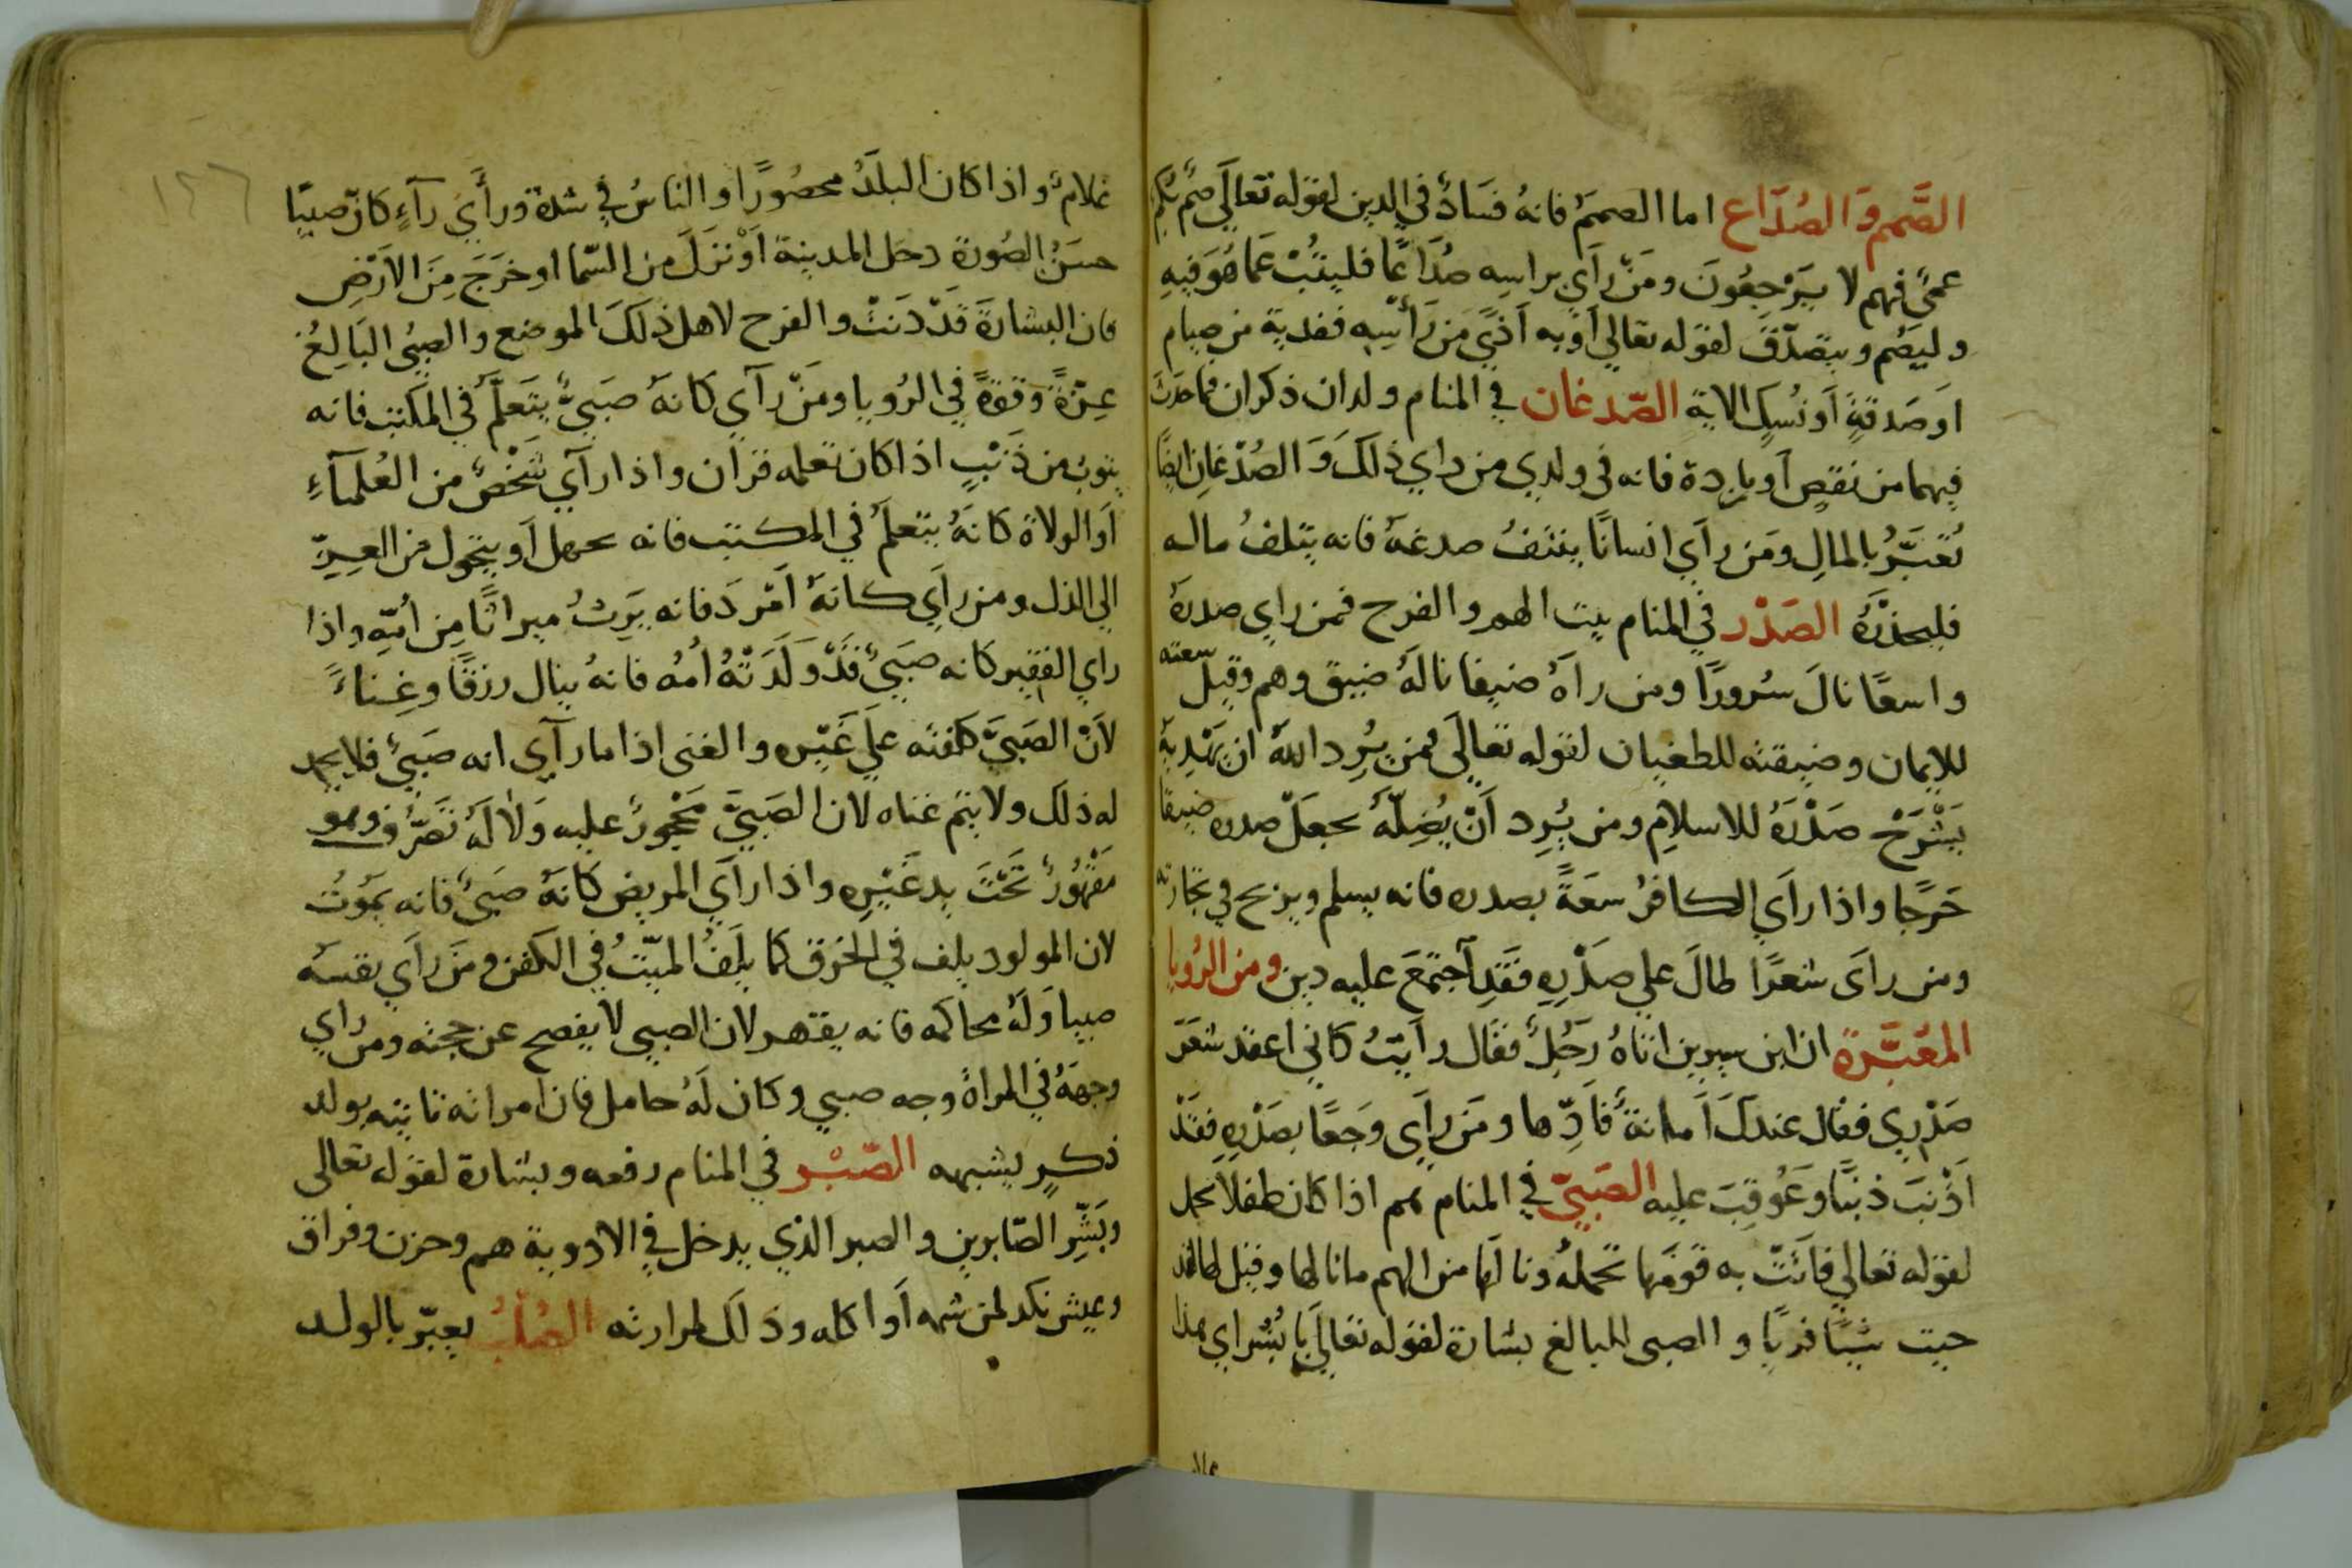 الصَّمم وَالصُدَّاع اما الصممُ فانهُ فسَادٌ في الدين لقوله تعالَي صُم بكم
عميٌ فهم لا يَرْجِعُونَ ومَنْ رَأي براسِه صُدَاعًا فليتُبْ عَما هُوَ فِيهِ
وليَصُم ويتصدّقَ لقوله تعالي اَو به اَذيً مَن رَأسِه ففدية من صيام
اوصَدقةٍ اَو نُسِكٍ الاية الصّدغان في المنام ولدان ذكران فما حدَثَ
فيهما من نقصٍ اَو بارِدة فانه في ولدي من راي ذلكَ وَالصُدْغان ايضًا
تُعَبَّرُ بالمالِ وَمَن رأي انسانًا ينتفُ صدغهُ فانه يتلفُ ماله
فليحذْرَهُ الصَدْر في المنام بيت الهم والفرح فمن راي صدرهُ
واسعًا نالَ سُرورًا ومن راَهُ ضيقا نالهُ ضيق وهم وقيل سعته
للايمان وضيقته للطغيان لقوله تعالَي فمن يُرِد اللهُ ان يَهْدِيهُ
يَشْرَحْ صَدْرَهُ للاسلامِ ومن يُرِد اَنْ يُضِلّهُ يجعَلْ صدره ضيقا
حَرجًا واذا رَاَي الكافرُ سعَةً بصدره فانه يسلم ويربح في تجارته
ومن رَاَي شعرًا طالَ علي صدْرِهِ فقَدِ اجتمَعَ عليه دين ومن الرُويا
المعُبَّرة ان ابن سيرين اتاهُ رَجُلٌ فقال رَاَيتُ كاني اعقد شَعَرَ
صَدْرِي فقال عندكَ اَمانةٌ فاَدِّها ومَن رَاَي وَجَعًا بصَدْرِهِ فقَدْ
اَذْنبَ ذنبًا وَعُوقِبَ عليه الصَبيّ في المنام هم اذا كان طفلاً يحمل
لقوله تعالي فاَتَتْ به قومَها تحملُه ونالَها من الهم ما نالها وقيل لها لقد
جيت شيئًا فريًا والصبي البالغ بشارة لقوله تعالَي يا بُشْراي هذا
١٢٦
غلامٌ واذا كان البلَدُ محصُورًا والناسُ في شدة ورأَيَ رآءٍ كانّ صبيًا
حسَنُ الصُورة دخل المدينة اَوْ نزَلَ من السّما او خرَجَ مِنَ الاَرْضِ
فان البشارةَ قَدْ دَنَتْ والفرح لاهل ذلكَ الموضع والصبيُ البَالِغُ
عِزّةٌ وَقوّةٌ في الرُويا ومَنْ رآَي كانهُ صَبيٌ يتَعَلّمُ في المكتب فانه
يتوب من ذَنْبٍ اذا كان تعلمه قران واذا رآي شَخْصٌ من العُلَمآءِ
اَو الولاة كانهُ يتعلمُ في المكتب فانه يجهل اَو يتحول من العِزِّ
الي الذل ومن راَي كانهُ اَمْردَ فانه يَرِثُ ميراثًا مِن اُمِّهِ واذا
راي الفقير كانه صَبيٌ قَدْ وَلَدَتْهُ اُمُه فانهُ ينال رزقًا وغِناءً
لاَنّ الصَبيَّ كلفته علَي غَيْره والغني اذا ما رآي انه صَبيٌ فلا يحمد
له ذلك ولا يتم غناه لان الصَبيَّ مَحْجورٌ عليه وَلا لَهُ تصَرُّف وهو
مَقْهُورٌ تَحْتَ يدِ غَيْرِهِ واذا راَي المريض كانهُ صَبيٌ فانه يَمُوتُ
لان المولود يلف في الخرق كما يلَفُ الميّتُ في الكفن ومَن رَاَي نفسَه
صبيا وَلَهُ محاكمه فانه يقهر لان الصبي لا يفصح عن حجته ومن راي
وجهَهُ في المراةِ وجه صبي وكان لَهُ حامل فان امراته تاتيه بولد
ذكرٍ يشبهه الصّبْر في المنام رفعه وبشارة لقوله تعالي
وبَشِّرِ الصّابرين والصبر الذي يدخل في الادوية هم وحزن وفراق
وعيش نكد لمن شمه اَو اكله وذلك لمرارته الصُلْبُ يعبّر بالولد